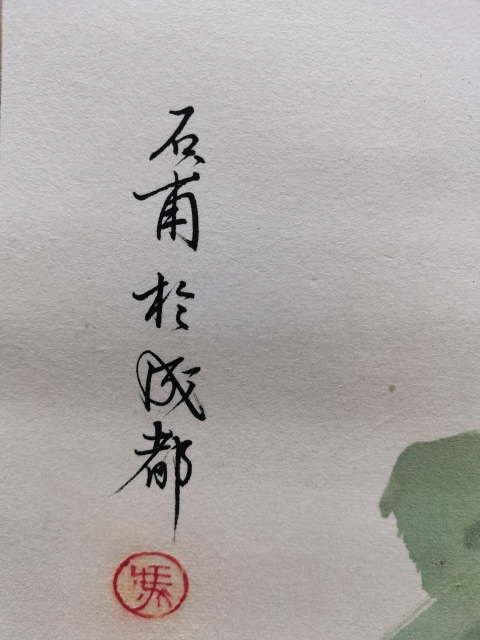 石甫於成都